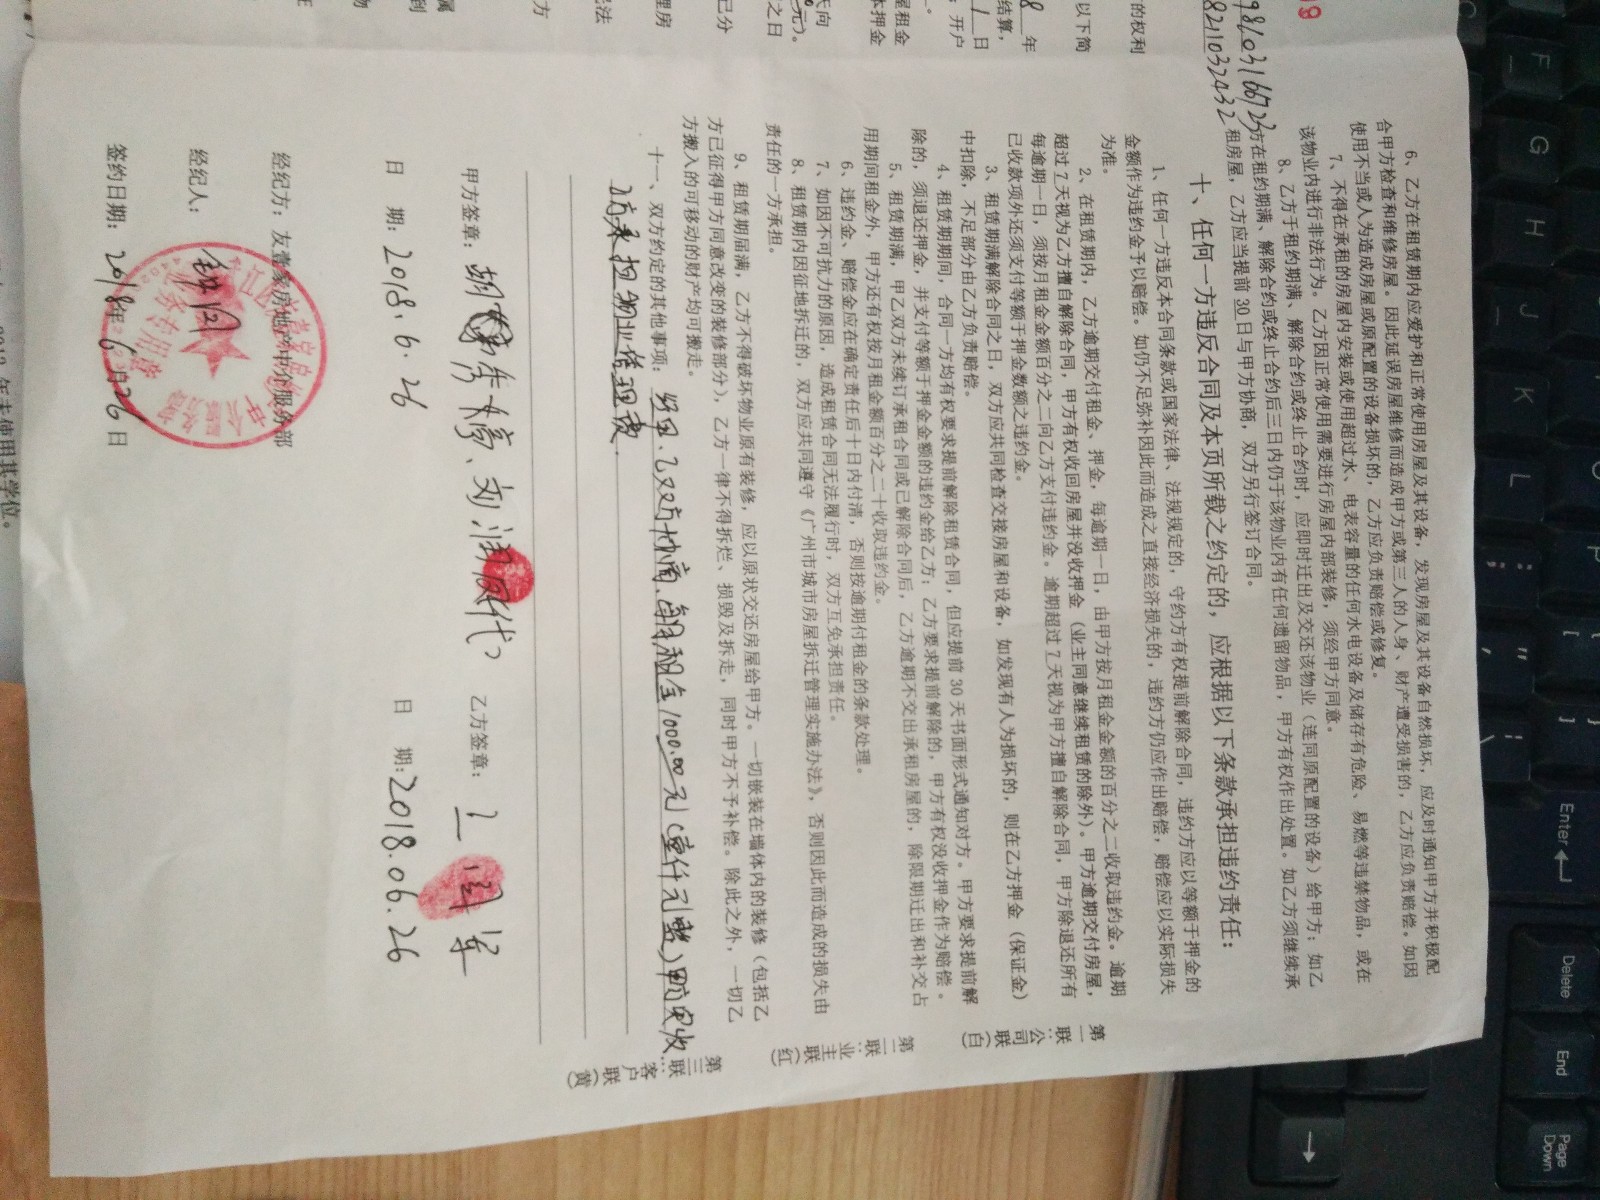 6、乙方在租赁期内应爱护和正常使用房屋及其设备，发现房屋及其设备自然损坏，应及时通知甲方并积极配
合甲方检查和维修房屋。因此延误房屋维修而造成甲方或第三人的人身、财产遭受损害的，乙方应负责赔偿。如因
使用不当或人为造成房屋或原配置的设备损坏的，乙方应负责赔偿或修复。
7、不得在承租的房屋内安装或使用超过水、电表容量的任何水电设备及储存有危险、易燃等违禁物品，或在
该物业内进行非法行为。乙方因正常使用需要进行房屋内部装修，须经甲方同意。
8、乙方于租约期满、解除合约或终止合约时，应即时迁出及交还该物业（连同原配置的设备）给甲方；如乙
方在租约期满、解除合约或终止合约后三日内仍于该物业内有任何遗留物品，甲方有权作出处置。如乙方须继续承
租房屋，乙方应当提前 30 日与甲方协商，双方另行签订合同。
十、任何一方违反合同及本页所载之约定的，应根据以下条款承担违约责任：
1、任何一方违反本合同条款或国家法律、法规规定的，守约方有权提前解除合同，违约方应以等额于押金的
金额作为违约金予以赔偿。如仍不足弥补因此而造成之直接经济损失的，违约方仍应作出赔偿，赔偿应以实际损失
为准。
2、在租赁期内，乙方逾期交付租金、押金，每逾期一日，由甲方按月租金金额的百分之二收取违约金。逾期
超过 7 天视为乙方擅自解除合同，甲方有权收回房屋并没收押金（业主同意继续租赁的除外）。甲方逾期交付房屋，
每逾期一日，须按月租金金额百分之二向乙方支付违约金。逾期超过 7 天视为甲方擅自解除合同，甲方除退还所有
已收款项外还须支付等额于押金数额之违约金。
3、租赁期满解除合同之日，双方应共同检查交接房屋和设备，如发现有人为损坏的，则在乙方押金（保证金）
中扣除，不足部分由乙方负责赔偿。
4、租赁期期间，合同一方均有权要求提前解除租赁合同，但应提前 30 天书面形式通知对方。甲方要求提前解
除的，须退还押金，并支付等额于押金金额的违约金给乙方；乙方要求提前解除的，甲方有权没收押金作为赔偿。
5、租赁期满，甲乙双方未续订承租合同或已解除合同后，乙方逾期不交出承租房屋的，除限期迁出和补交占
用期间租金外，甲方还有权按月租金额百分之二十收取违约金。
6、违约金、赔偿金应在确定责任后十日内付清，否则按逾期付租金的条款处理。
7、如因不可抗力的原因，造成租赁合同无法履行时，双方互免承担责任。
8、租赁期内因征地拆迁的，双方应共同遵守《广州市城市房屋拆迁管理实施办法》，否则因此而造成的损失由
责任的一方承担。
9、租赁期届满，乙方不得破坏物业原有装修，应以原状交还房屋给甲方。一切嵌装在墙体内的装修（包括乙
方已征得甲方同意改变的装修部分），乙方一律不得拆烂、损毁及拆走，同时甲方不予补偿。除此之外，一切乙
方搬入的可移动的财产均可搬走。
十一、双方约定的其他事项：经甲、乙双方协商，每月租金1000.00元（壹仟元整）甲方实收
乙方承担物业管理费.
甲方签章：
乙方签章：
日 期：2018.6.26
日 期：2018.06.26
经纪方：友壹家房地产中介服务部
经纪人：
签约日期：2018年6月26日
第一联：公司联（白）
第二联：业主联（红）
第三联：客户联（黄）